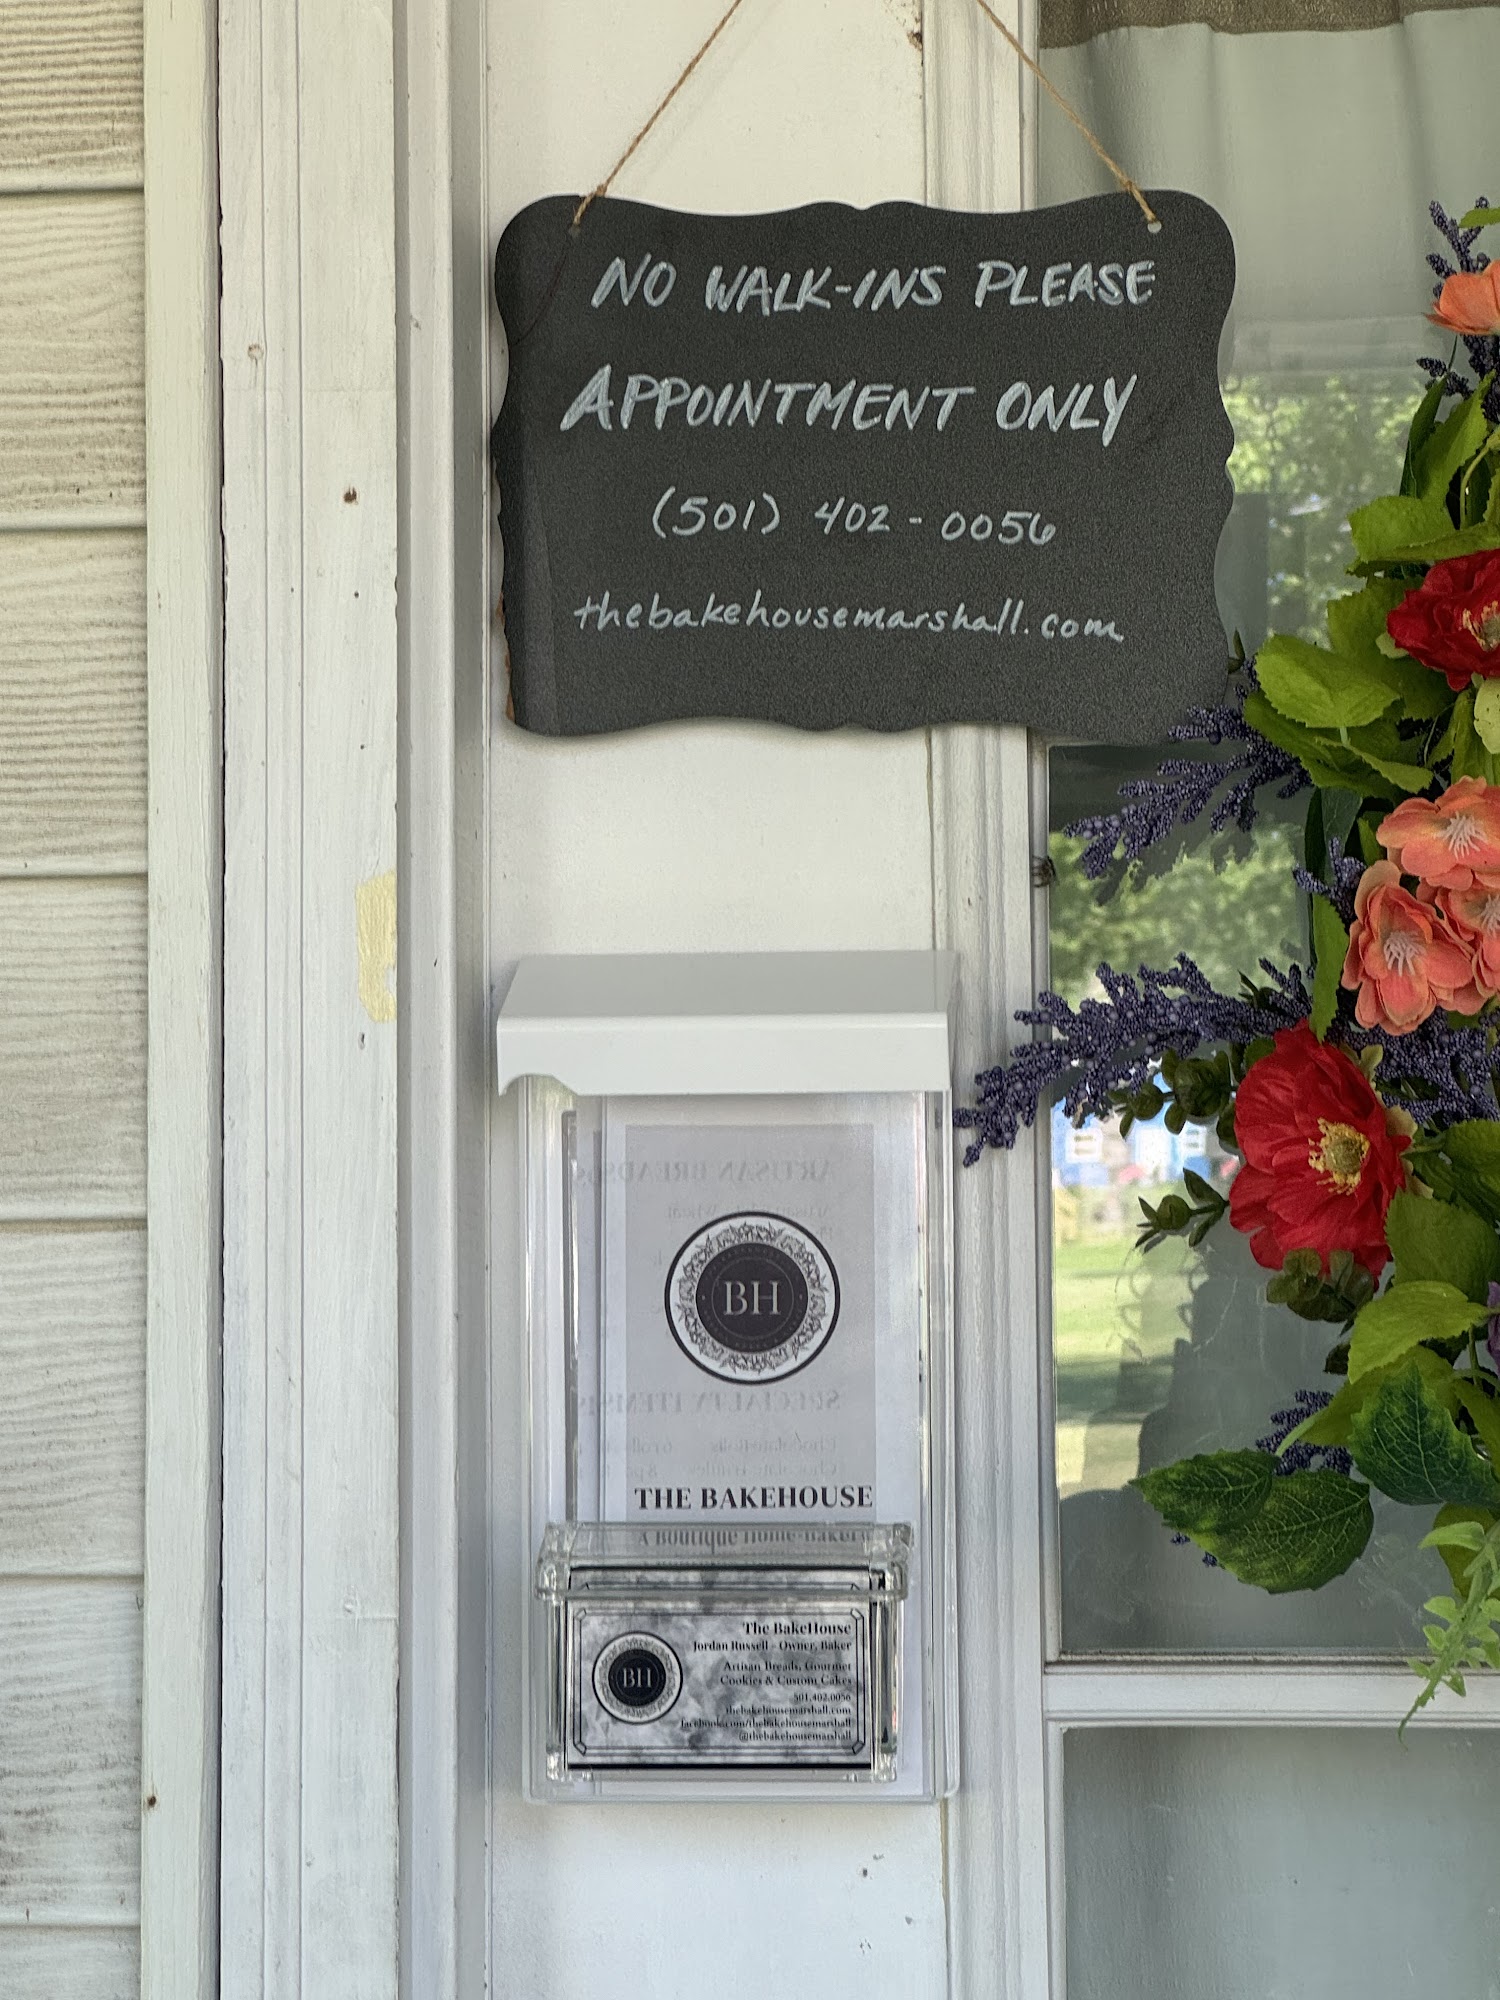 NO WALK-INS PLEASE
APPOINTMENT ONLY
(501) 402-0056
thebakehousemarshall.com
ARTISAN BREADS
SPECIALTY ITEMS
BH
THE BAKEHOUSE
A Boutique Home-Bakery
BH
The BakeHouse
Jordan Russell - Owner, Baker
Artisan Breads, Gourmet
Cookies & Custom Cakes
501.402.0056
thebakehousemarshall.com
facebook.com/thebakehousemarshall
@thebakehousemarshall